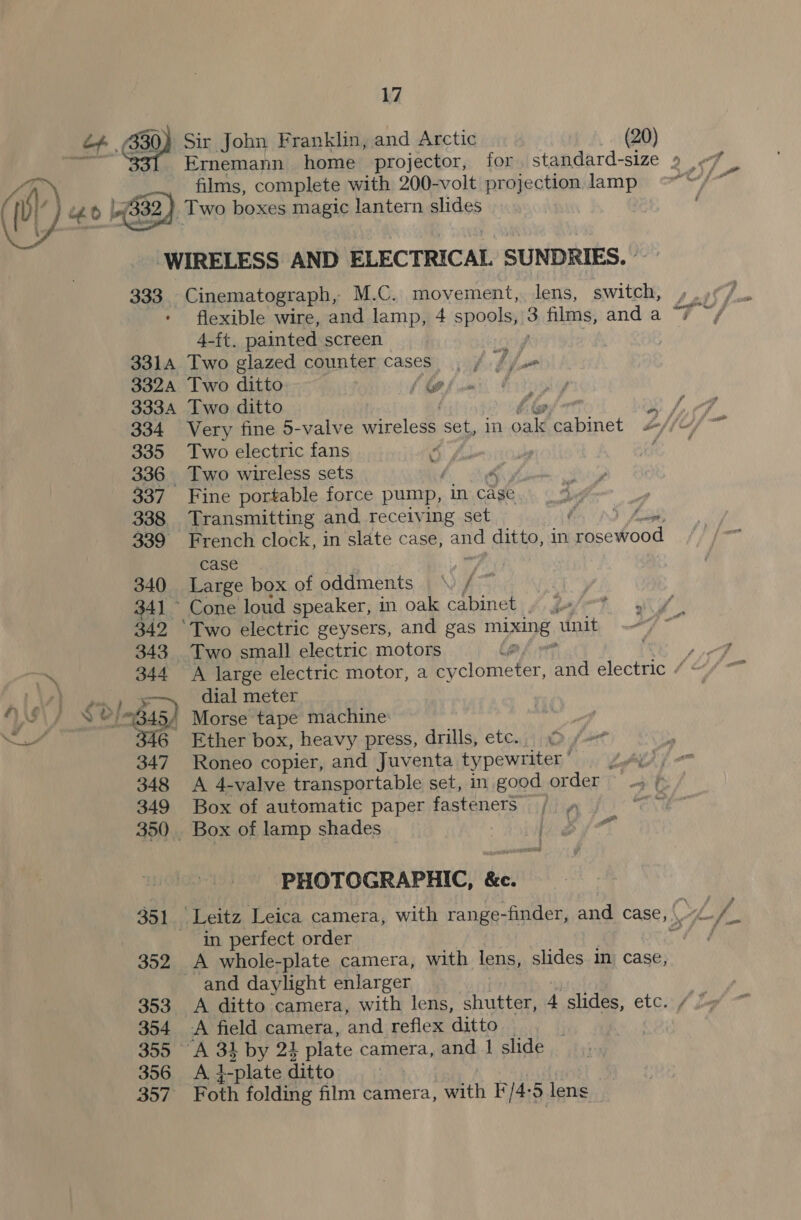 17
330 Sir John Franklin, and Arctic (20)
331 Ernemann home projector, for standard-size
films, complete with 200-volt projection lamp
332 Two boxes magic lantern slides
WIRELESS AND ELECTRICAL SUNDRIES.
333 Cinematograph, M.C. movement, lens, switch,
flexible wire, and lamp, 4 spools, 3 films, and a
4-ft. painted screen
331A Two glazed counter cases
332A Two ditto
333A Two ditto
334 Very fine 5-valve wireless set, in oak cabinet
335 Two electric fans
336 Two wireless sets
337 Fine portable force pump, in case
338 Transmitting and receiving set
339 French clock, in slate case, and ditto, in rosewood
case
340 Large box of oddments
341 Cone loud speaker, in oak cabinet
342 Two electric geysers, and gas mixing unit
343 Two small electric motors
344 A large electric motor, a cyclometer, and electric
dial meter
345 Morse tape machine
346 Ether box, heavy press, drills, etc.
347 Roneo copier, and Juventa typewriter
348 A 4-valve transportable set, in good order
349 Box of automatic paper fasteners
350 Box of lamp shades
PHOTOGRAPHIC, &c.
351 Leitz Leica camera, with range-finder, and case,
in perfect order
352 A whole-plate camera, with lens, slides in case,
and daylight enlarger
353 A ditto camera, with lens, shutter, 4 slides, etc.
354 A field camera, and reflex ditto
355 A 3½ by 2½ plate camera, and 1 slide
356 A ¼-plate ditto
357 Foth folding film camera, with F/4·5 lens